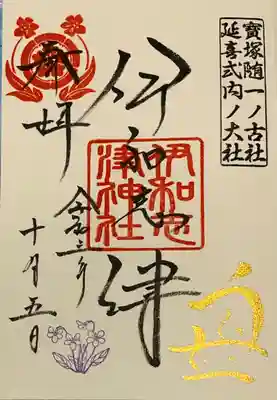 寶塚随一ノ古社
延喜式内ノ大社
奉拝
伊和志津
伊和志津神社
令和三年
十月五日